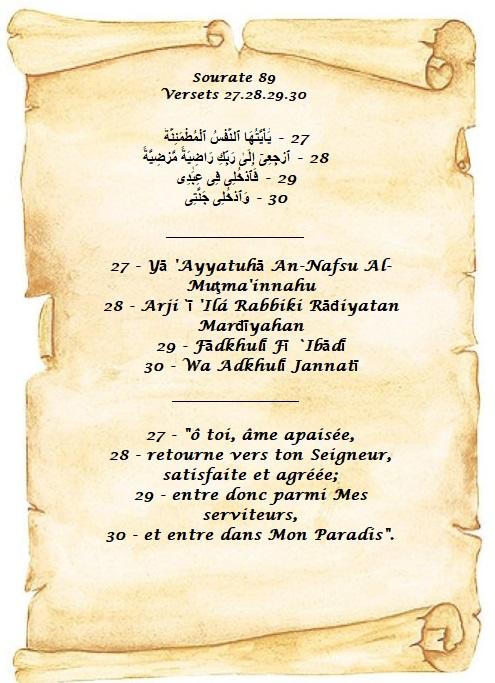 Sourate 89
Versets 27.28.29.30
يَٰٓأَيَّتُهَا ٱلنَّفْسُ ٱلْمُطْمَئِنَّةُ - 27
ٱرْجِعِىٓ إِلَىٰ رَبِّكِ رَاضِيَةً مَّرْضِيَّةً - 28
فَٱدْخُلِى فِى عِبَٰدِى - 29
وَٱدْخُلِى جَنَّتِى - 30
27 - Yā 'Ayyatuhā An-Nafsu Al-
Muţma'innahu
28 - Arji`ī 'Ilá Rabbiki Rāđiyatan
Marđīyahan
29 - Fādkhulī Fī `Ibādī
30 - Wa Adkhulī Jannatī
27 - "ô toi, âme apaisée,
28 - retourne vers ton Seigneur,
satisfaite et agréée;
29 - entre donc parmi Mes
serviteurs,
30 - et entre dans Mon Paradis".